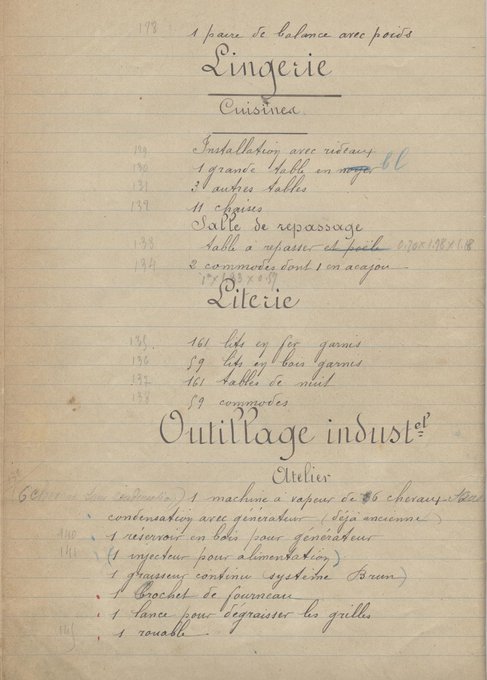 128 1 paire de balance avec poids
Lingerie
Cuisines
129 Installation avec rideaux
130 1 grande table en noyer bl
131 3 autres tables
132 11 chaises
Salle de repassage
133 table à repasser et poële 0.70 x 1.98 x 1.18
134 2 commodes dont 1 en acajou
Literie
135 161 lits en fer garnis
136 59 lits en bois garnis
137 161 tables de nuit
138 59 commodes
Outillage indust.el
Atelier
1 machine à vapeur de 6 chevaux
condensation avec générateur (déjà ancienne)
140 1 réservoir en bois pour générateur
141 (1 injecteur pour alimentation)
1 graisseur continu système Brun)
1 crochet de fourneau
1 lance pour dégraisser les grilles
1 rouable